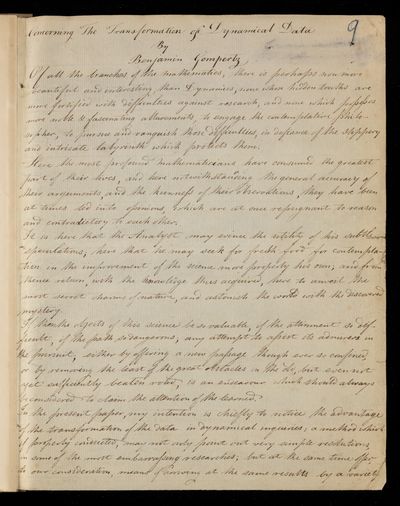 9
Concerning The Transformation of Dynamical Data
By
Benjamin Gompertz
Of all the branches of the mathematics, there is perhaps non more
beautiful and interesting than Dynamics, none whose hidden truths are
more fortified with difficulties against research, and none which possess
more noble & fascinating allurements, to engage the contemplative Philo-
sopher, to pursue and vanquish those difficulties, in defiance of the slippery
and intricate labyrinth which protects them.
Here the most profound mathematicians have consumed the greatest
part of their lives, and here notwithstanding the general accuracy of
their arguments and the keenness of their observations, they have been
at times led into opinions, which are at once repugnant to reason
and contradictory to each other.
It is here that the Analyst may evince the utility of his sublime
speculations, here that he may seek for fresh food for contempla-
tion in the improvement of the science more properly his own; and from
thence return, with the knowledge thus acquired, here to unveil the
most secret charms of nature, and astonish the world with the discovered
mystery.
If then the objects of this science be so valuable, of the attainment so dif-
ficult, of the path so dangerous, any attempt to assist its admirers in
the pursuit, either by offering a new passage though ever so confined,
or by removing the least of the great obstacles in the old, but even not
yet sufficiently beaten road, is an endeavour which should always
be considered to claim the attention of the learned.
In the present paper, my intention is chiefly to notice the advantage
of the transformation of the data in dynamical inquiries; a method which
if properly conducted, may not only point out very simple resolutions
in some of the most embarrassing researches; but at the same time offer
to our consideration, means of arriving at the same results by a variety